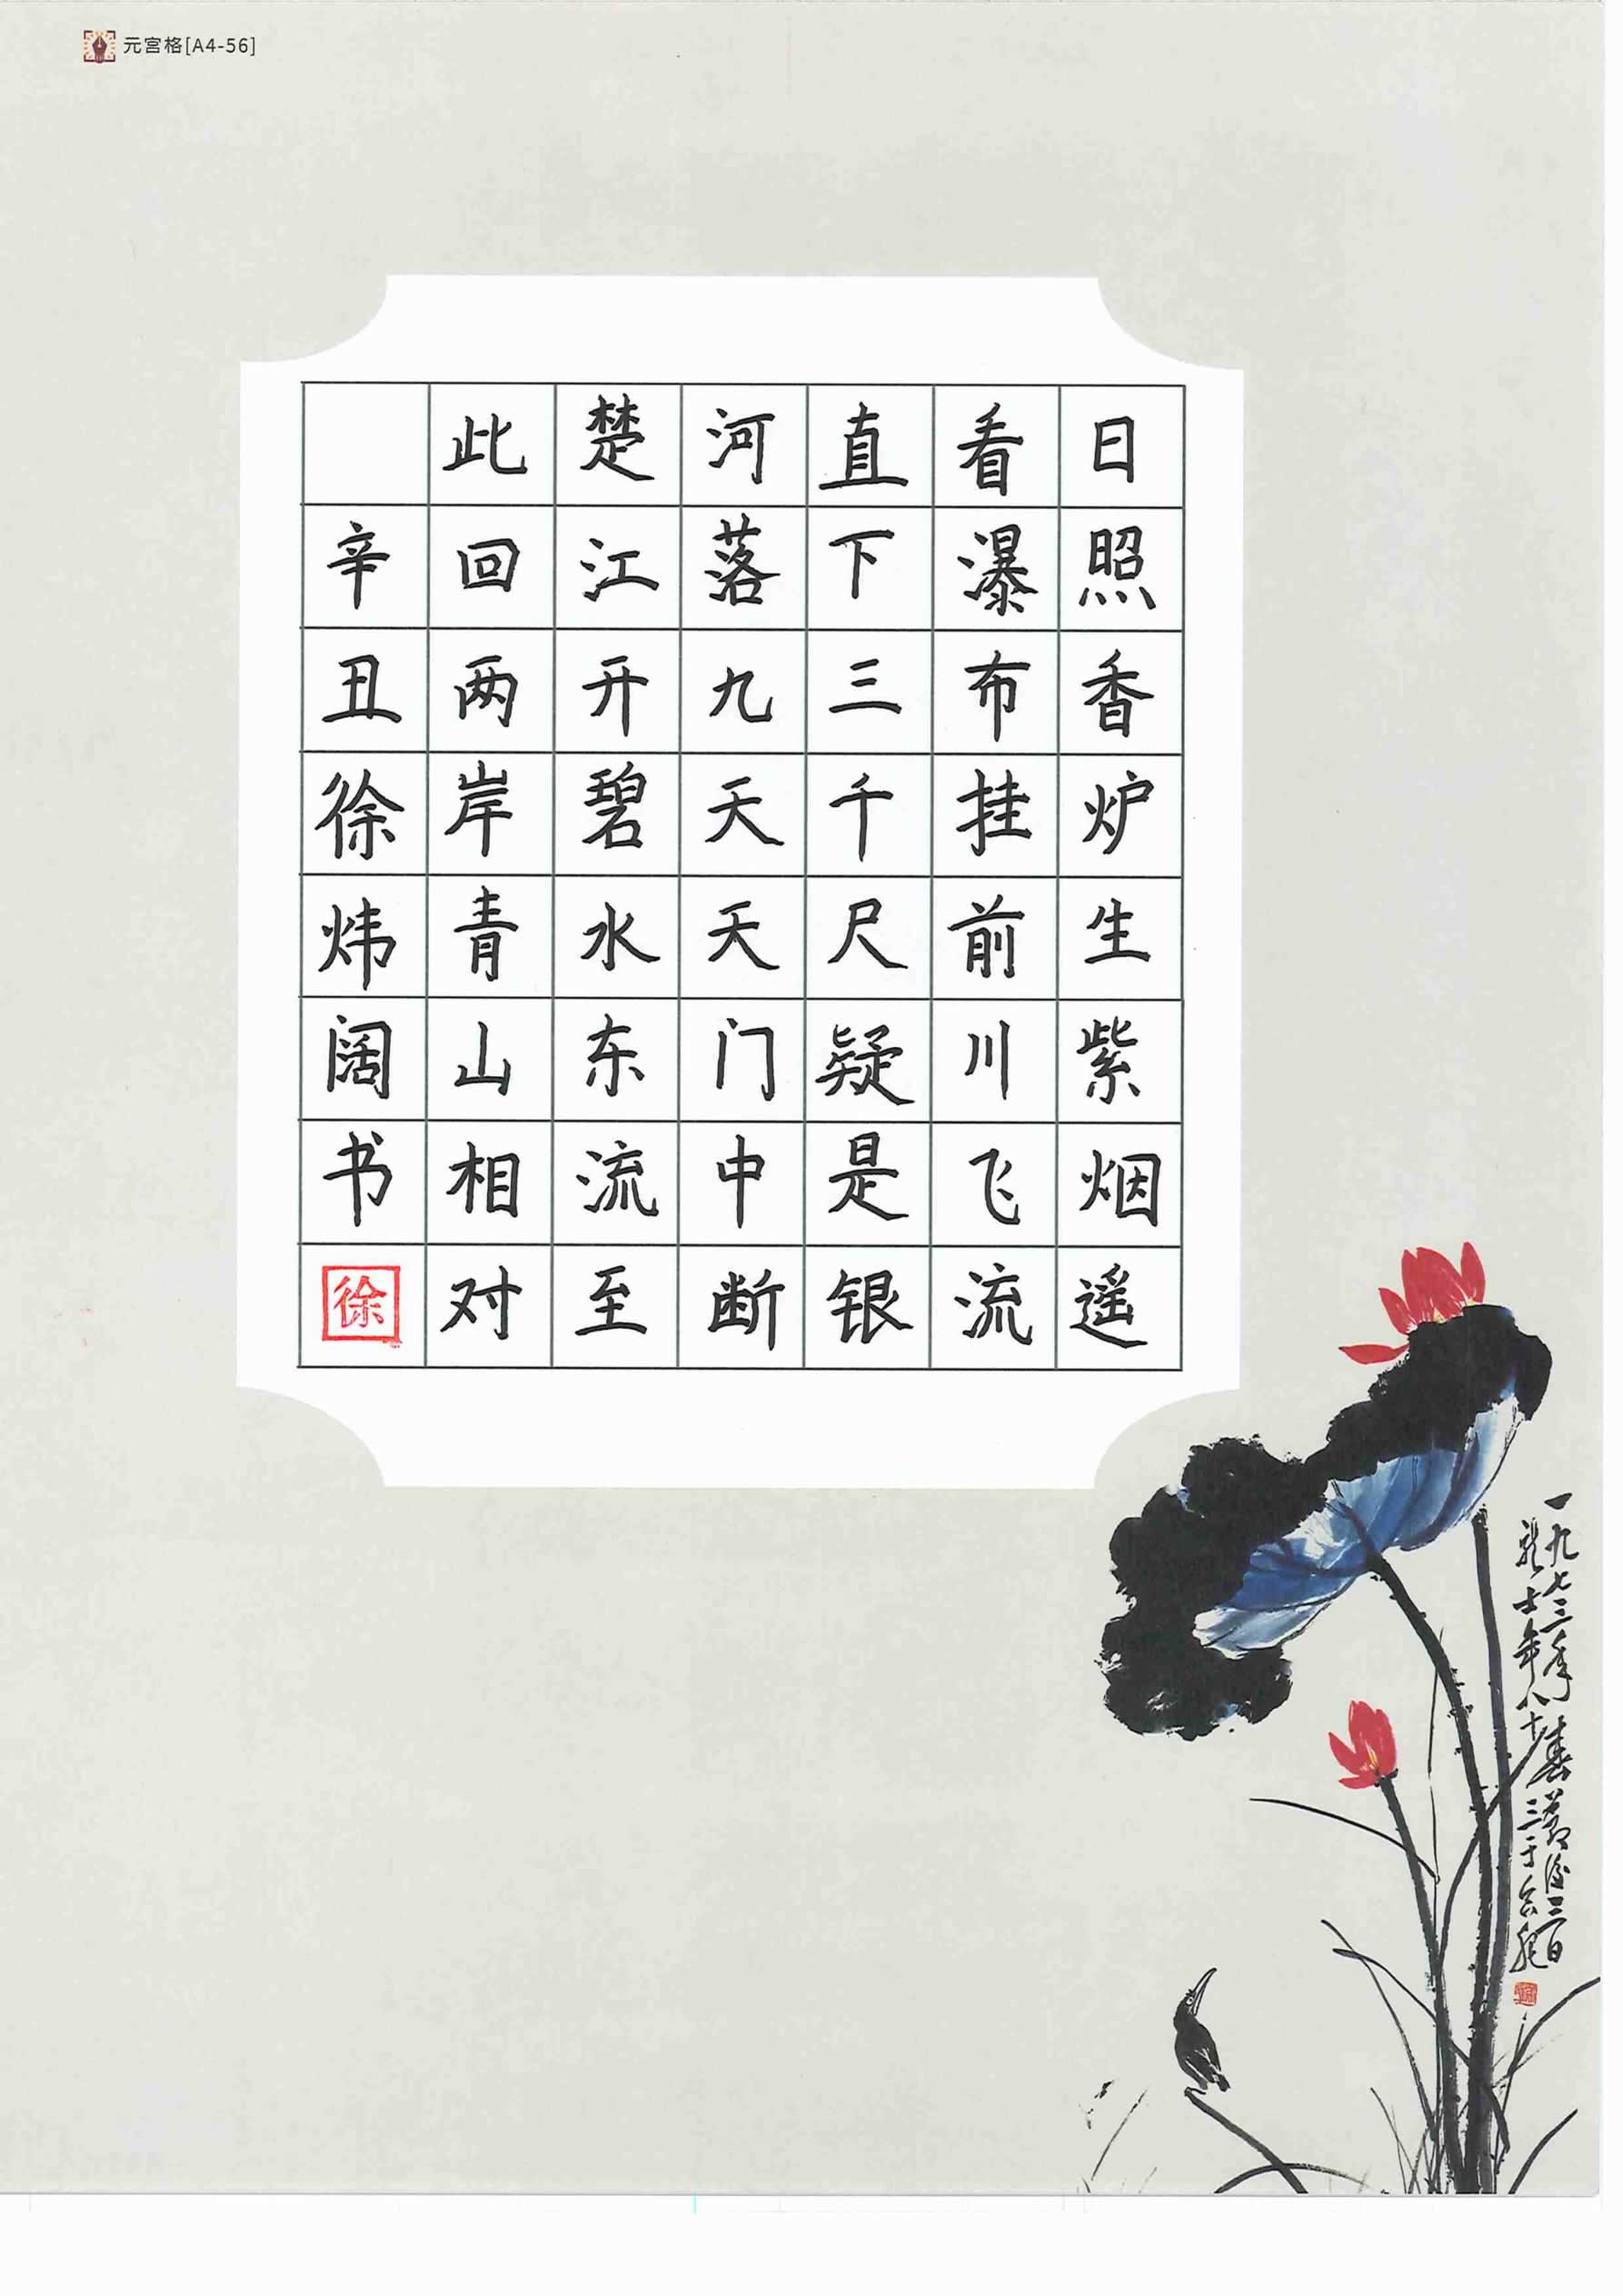 元宫格[A4-56]
日照香炉生紫烟遥
看瀑布挂前川飞流
直下三千尺疑是银
河落九天天门中断
楚江开碧水东流至
此回两岸青山相对
辛丑徐炜阔书
徐
一九七三年春暮后三日